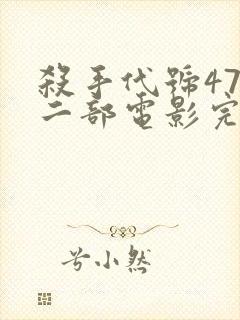 殺手代號47
二部電影完
兮小然